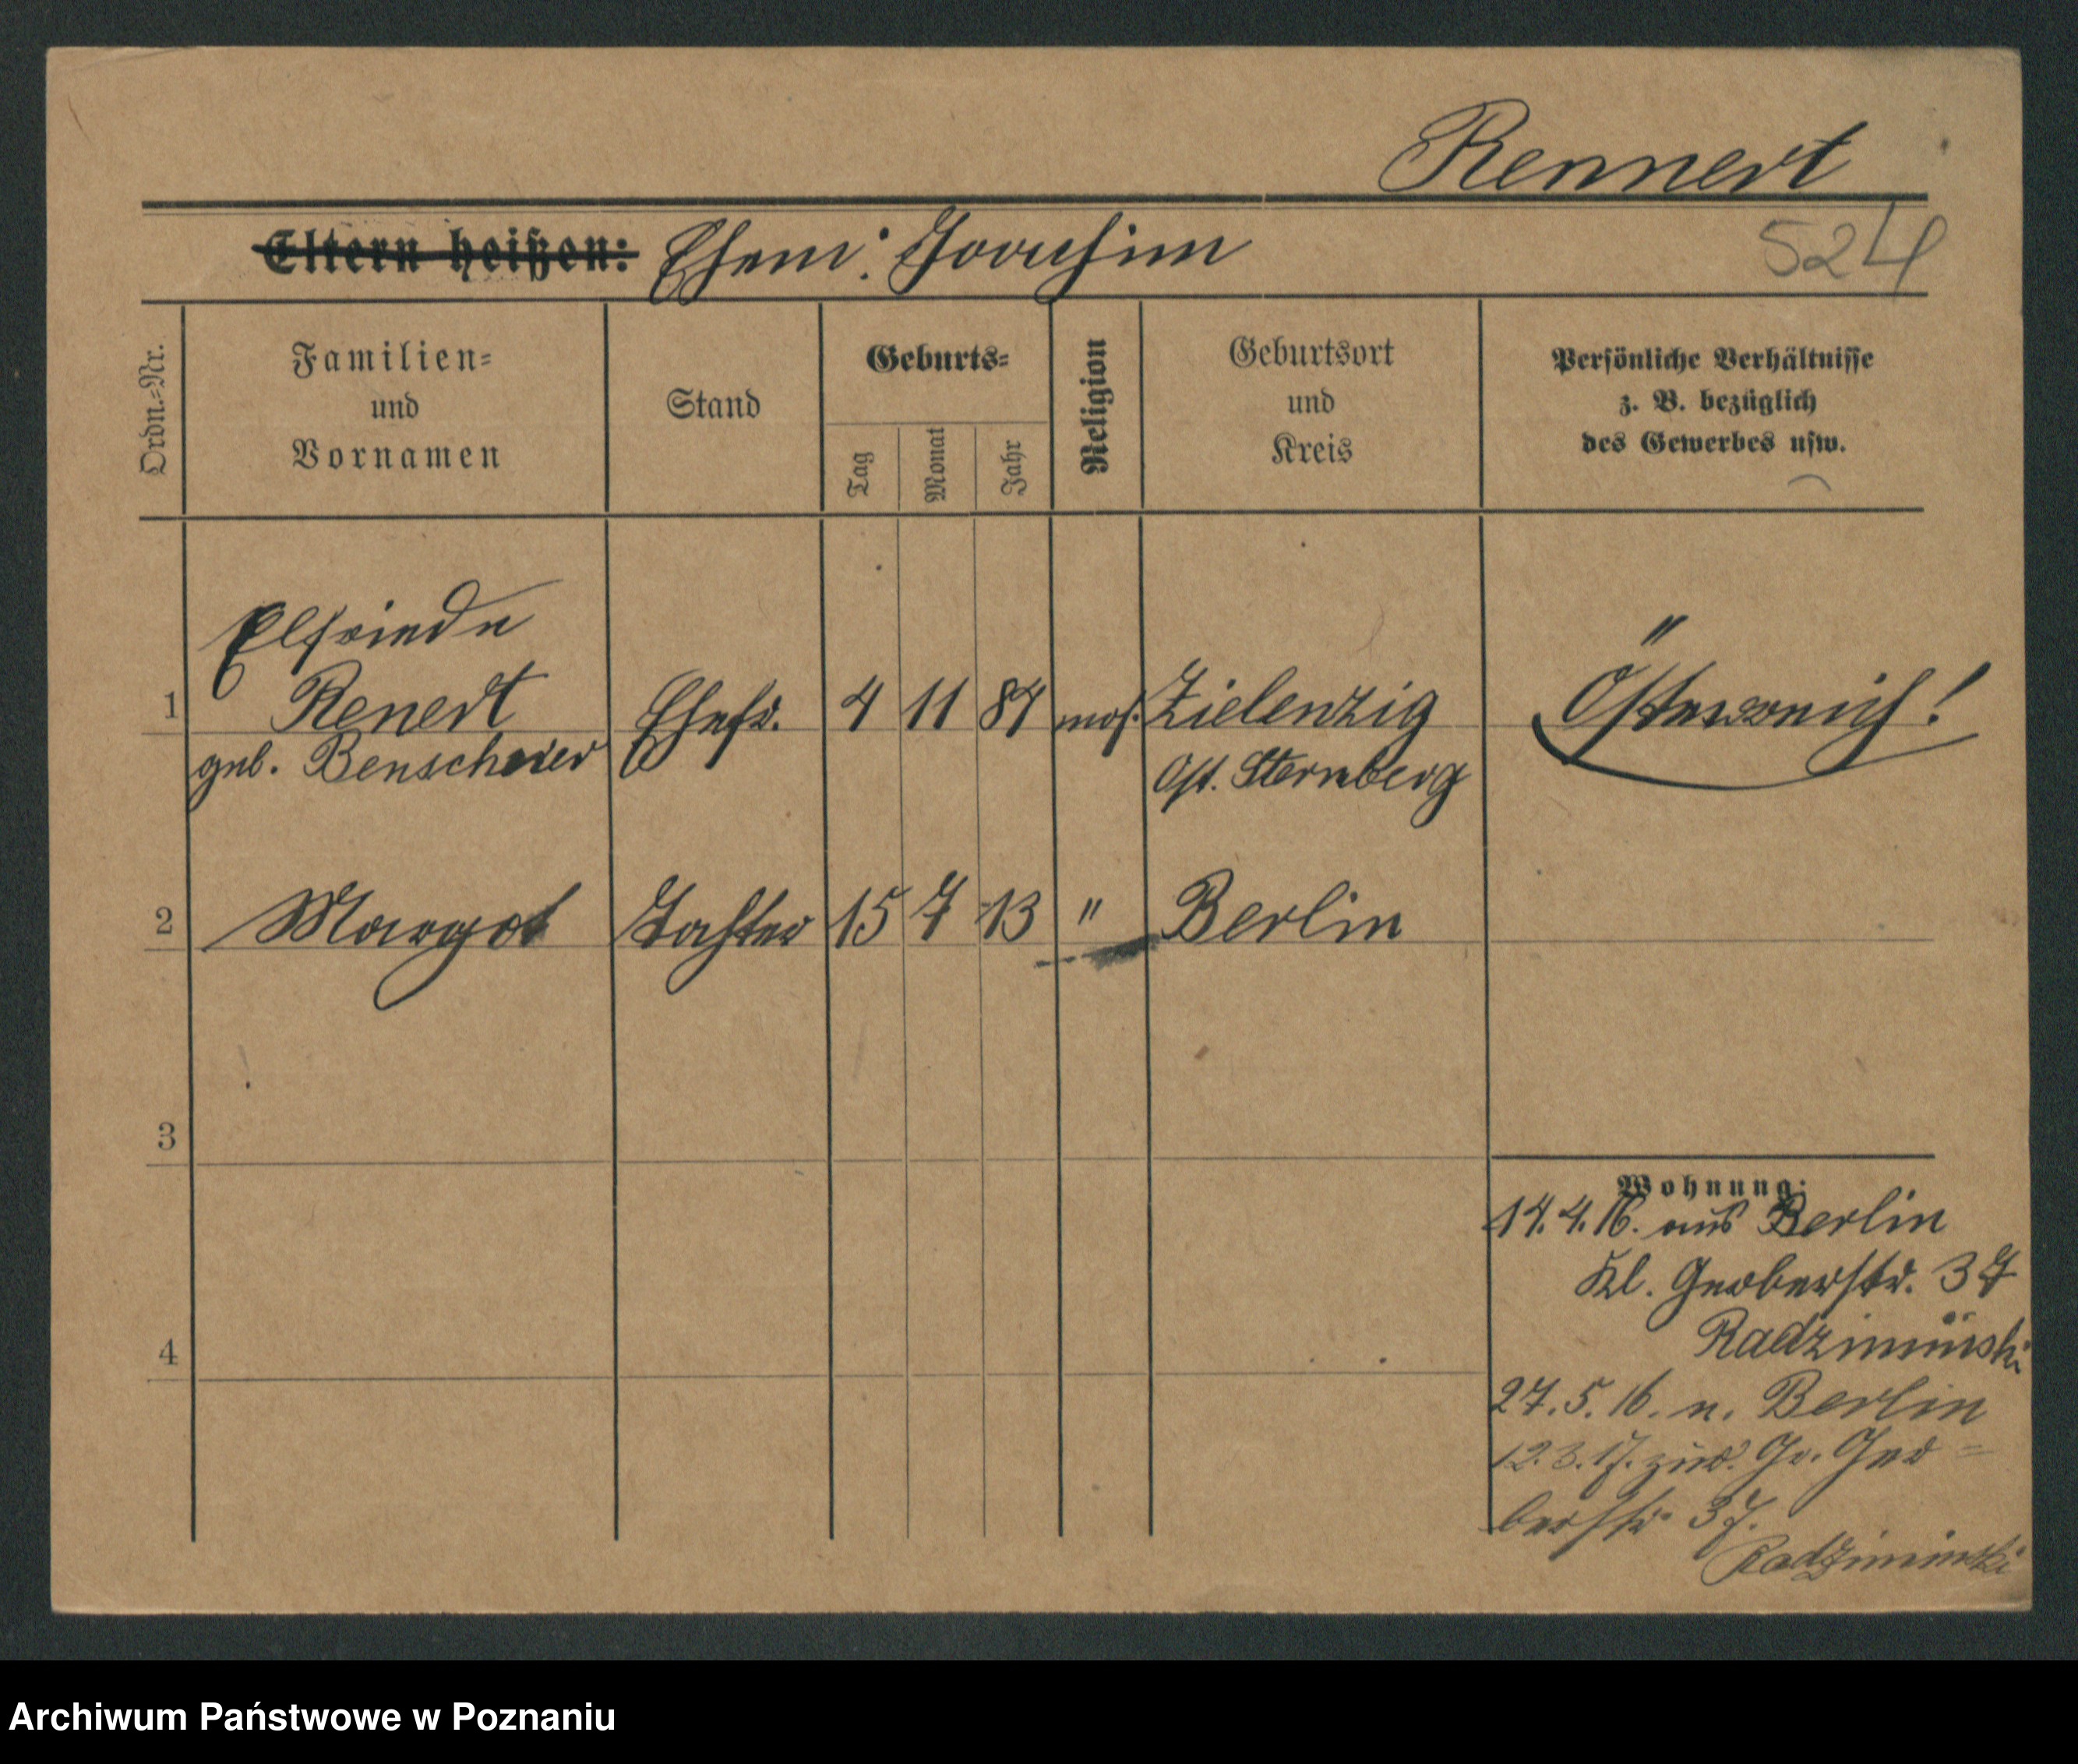 Rennert
Eltern heißen: Ehem: Joachim
524
Ordn.-Nr.
Familien-
und
Vornamen
Stand
Geburts-
Tag
Monat
Jahr
Religion
Geburtsort
und
Kreis
Persönliche Verhältnisse
z. B. bezüglich
des Gewerbes usw.
Elfriede
1 Renert Ehefr. 4 11 87 mos. Zielenzig Österreich!
geb. Benscherer Ost. Sternberg
2 Margot Tochter 15 7 13 " Berlin
3
4
Wohnung:
14.4.16. aus Berlin
Kl. Gerberstr. 37
Radziminski
27.5.16. n. Berlin
12.3.17. zur. Gr. Ger-
berstr 37.
Radziminski
Archiwum Państwowe w Poznaniu